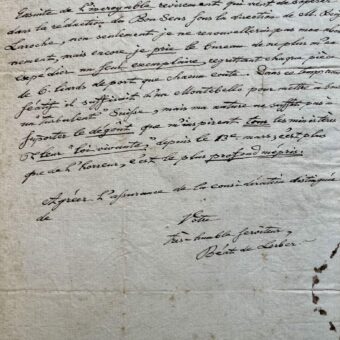 ensuite de l'incroyable revirement qui vient de s'opérer
dans la rédaction du Bon Sens sous la direction de Mr.
Laroche, non seulement, je ne renouvellerai pas mon abon-
nement, mais encore je prie le bureau de ne plus m'en
expédier un seul exemplaire, regrettant chaque pièce
de 6 liards de port que chacun coute. Dans ce temps
il suffiroit d'un Montebello pour mettre à bout
un "turbulent" Suisse, mais ma nature ne suffit pas à
supporter le dégout que m'inspirent tous les ministères
depuis le 13e mars; c'est plus
que de l'horreur, c'est le plus profond mépris.
Agréer l'assurance de la considération distinguée
de
Votre
très-humble serviteur,
Béat de Lerber